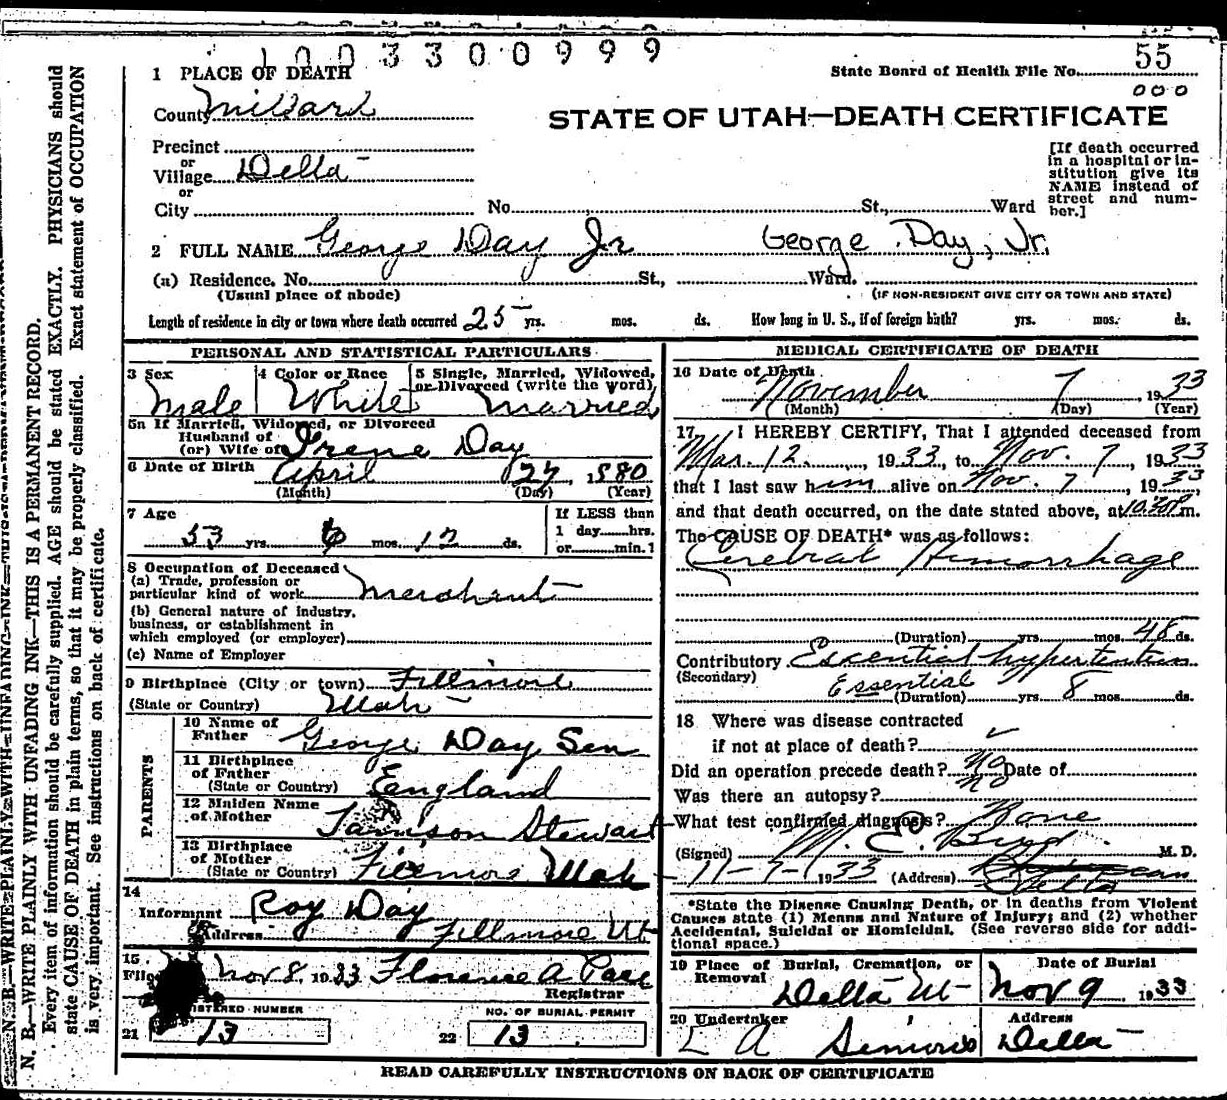 1 0 0 3 3 0 0 9 9 9
1 PLACE OF DEATH
State Board of Health File No. 55
000
County Millard
STATE OF UTAH—DEATH CERTIFICATE
Precinct
or
Village Delta
or
City No. St., Ward
[If death occurred in a hospital or in-
stitution give its
NAME instead of
street and num-
ber.]
2 FULL NAME George Day Jr George Day, Jr.
(a) Residence. No. St., Ward.
(Usual place of abode) (IF NON-RESIDENT GIVE CITY OR TOWN AND STATE)
Length of residence in city or town where death occurred 25 yrs. mos. ds. How long in U. S., if of foreign birth? yrs. mos. ds.
PERSONAL AND STATISTICAL PARTICULARS
3 Sex 4 Color or Race 5 Single, Married, Widowed,
or Divorced (write the word)
Male White Married
5a If Married, Widowed, or Divorced
Husband of
(or) Wife of Irene Day
6 Date of Birth April 27, 1880
(Month) (Day) (Year)
7 Age If LESS than
1 day hrs.
53 yrs. 6 mos. 12 ds. or min.?
8 Occupation of Deceased
(a) Trade, profession or
particular kind of work Merchant
(b) General nature of industry,
business, or establishment in
which employed (or employer)
(c) Name of Employer
9 Birthplace (City or town) Fillmore
(State or Country) Utah
PARENTS
10 Name of
Father George Day Sen
11 Birthplace
of Father
(State or Country) England
12 Maiden Name
of Mother Stewart
13 Birthplace
of Mother
(State or Country) Fillmore Utah
14
Informant Roy Day
Address Fillmore Ut
15
Filed Nov 8 1933 Florence A
Registrar
REGISTERED NUMBER NO. OF BURIAL PERMIT
21 13 22 13
MEDICAL CERTIFICATE OF DEATH
16 Date of Death
November 7, 1933
(Month) (Day) (Year)
17 I HEREBY CERTIFY, That I attended deceased from
Mar. 12, 1933, to Nov. 7, 1933
that I last saw him alive on Nov. 7, 1933,
and that death occurred, on the date stated above, at m.
The CAUSE OF DEATH* was as follows:
Cerebral Hemorrhage
(Duration) yrs. mos. 48 ds.
Contributory Essential hypertension
(Secondary) Essential
(Duration) yrs. 8 mos. ds.
18 Where was disease contracted
if not at place of death?
Did an operation precede death? No Date of
Was there an autopsy? no
What test confirmed diagnosis? None
(Signed) M. E. Bird M. D.
11-7-1933 (Address) Delta
*State the Disease Causing Death, or in deaths from Violent
Causes state (1) Means and Nature of Injury; and (2) whether
Accidental, Suicidal or Homicidal. (See reverse side for addi-
tional space.)
19 Place of Burial, Cremation, or
Removal Date of Burial
Delta Ut Nov 9 1933
20 Undertaker Address
L A Delta
READ CAREFULLY INSTRUCTIONS ON BACK OF CERTIFICATE
N. B.—WRITE PLAINLY WITH UNFADING INK—THIS IS A PERMANENT RECORD.
Every item of information should be carefully supplied. AGE should be stated EXACTLY. PHYSICIANS should
state CAUSE OF DEATH in plain terms, so that it may be properly classified. Exact statement of OCCUPATION
is very important. See instructions on back of certificate.